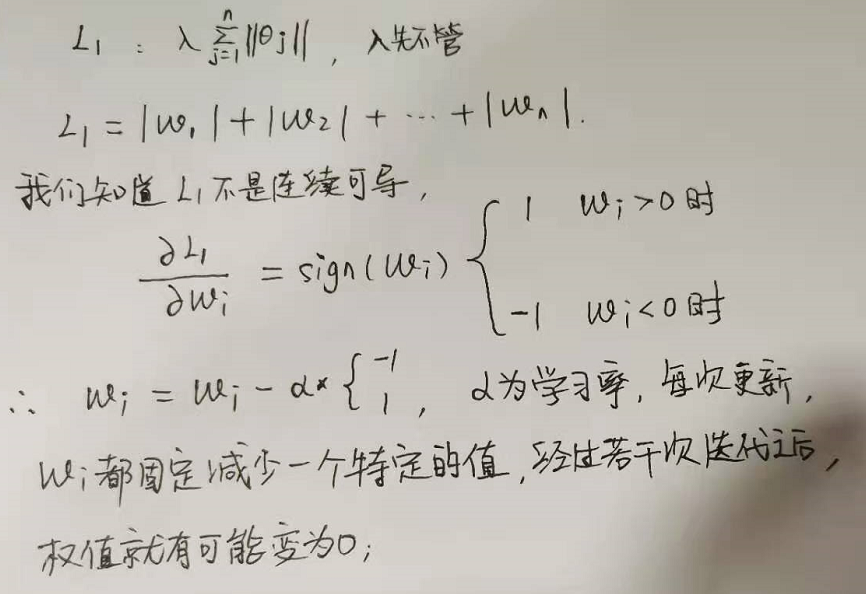 L₁ : λ ∑ⱼ₌₁ⁿ ||θj|| , λ先不管
L₁ = |w₁| + |w₂| + ⋯ + |wₙ| .
我们知道 L₁ 不是连续可导,
∂L₁/∂wᵢ = sign(wᵢ) { 1 wᵢ>0 时
-1 wᵢ<0 时
∴ wᵢ = wᵢ - α* { -1 1 , α为学习率, 每次更新,
wᵢ 都固定减少一个特定的值, 经过若干次迭代之后,
权值就有可能变为0;